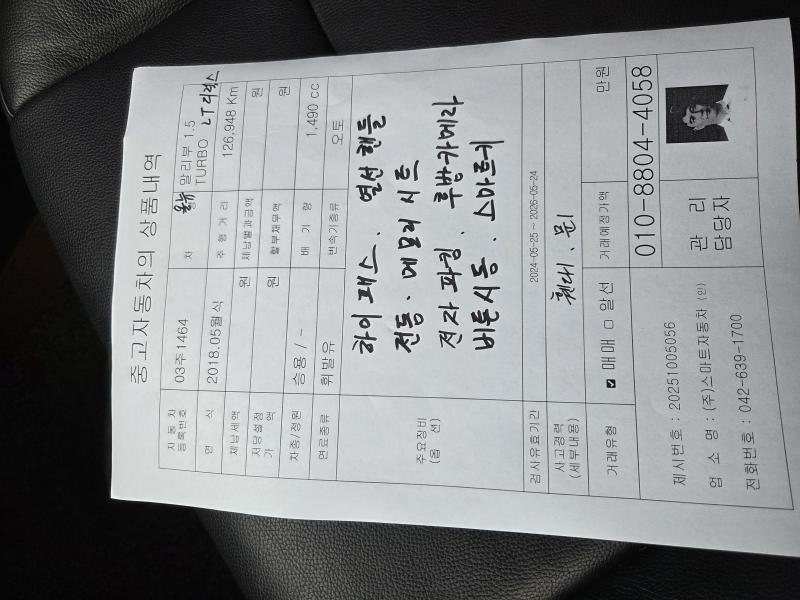 중고자동차의 상품내역
자동차 등록번호 03주1464 차명 말리부 1.5 TURBO LT디럭스
연식 2018.05월식 주행거리 126,948 Km
체납세액 원 체납별과금액 원
저당설정가액 원 할부채무액 원
차종/정원 승용 / - 배기량 1,490 cc
연료종류 휘발유 변속기종류 오토
주요장비 (옵션)
하이패스. 열선핸들
전동. 메모리 시트
전자파킹. 후방카메라
버튼시동. 스마트키
검사유효기간 2024-05-25 ~ 2026-05-24
사고경력 (세부내용) 휀다, 문1
거래유형 ☑ 매매 □ 알선 거래예정가액 만원
제시번호 : 20251005056
업소명 : (주)스마트자동차 (인)
전화번호 : 042-639-1700
관리담당자
010-8804-4058